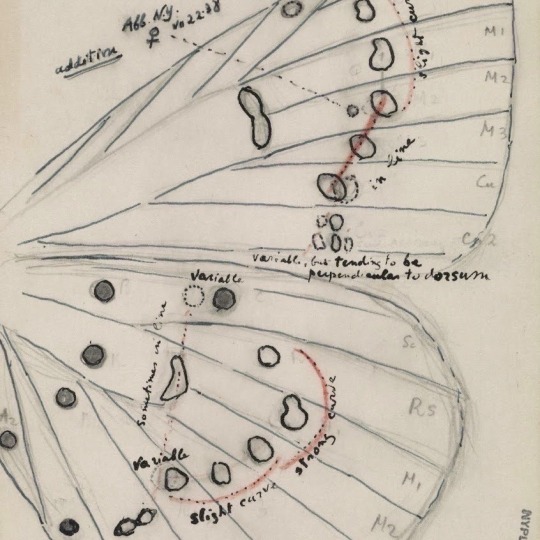 Abb. N.Y.
♀
addition
slight curve
M1
M2
M3
in line
Cu
variable, but tending to be
perpendicular to dorsum
variable
sometimes in line
Sc
Rs
strong curve
variable
slight curve
M1
M2
NYPL